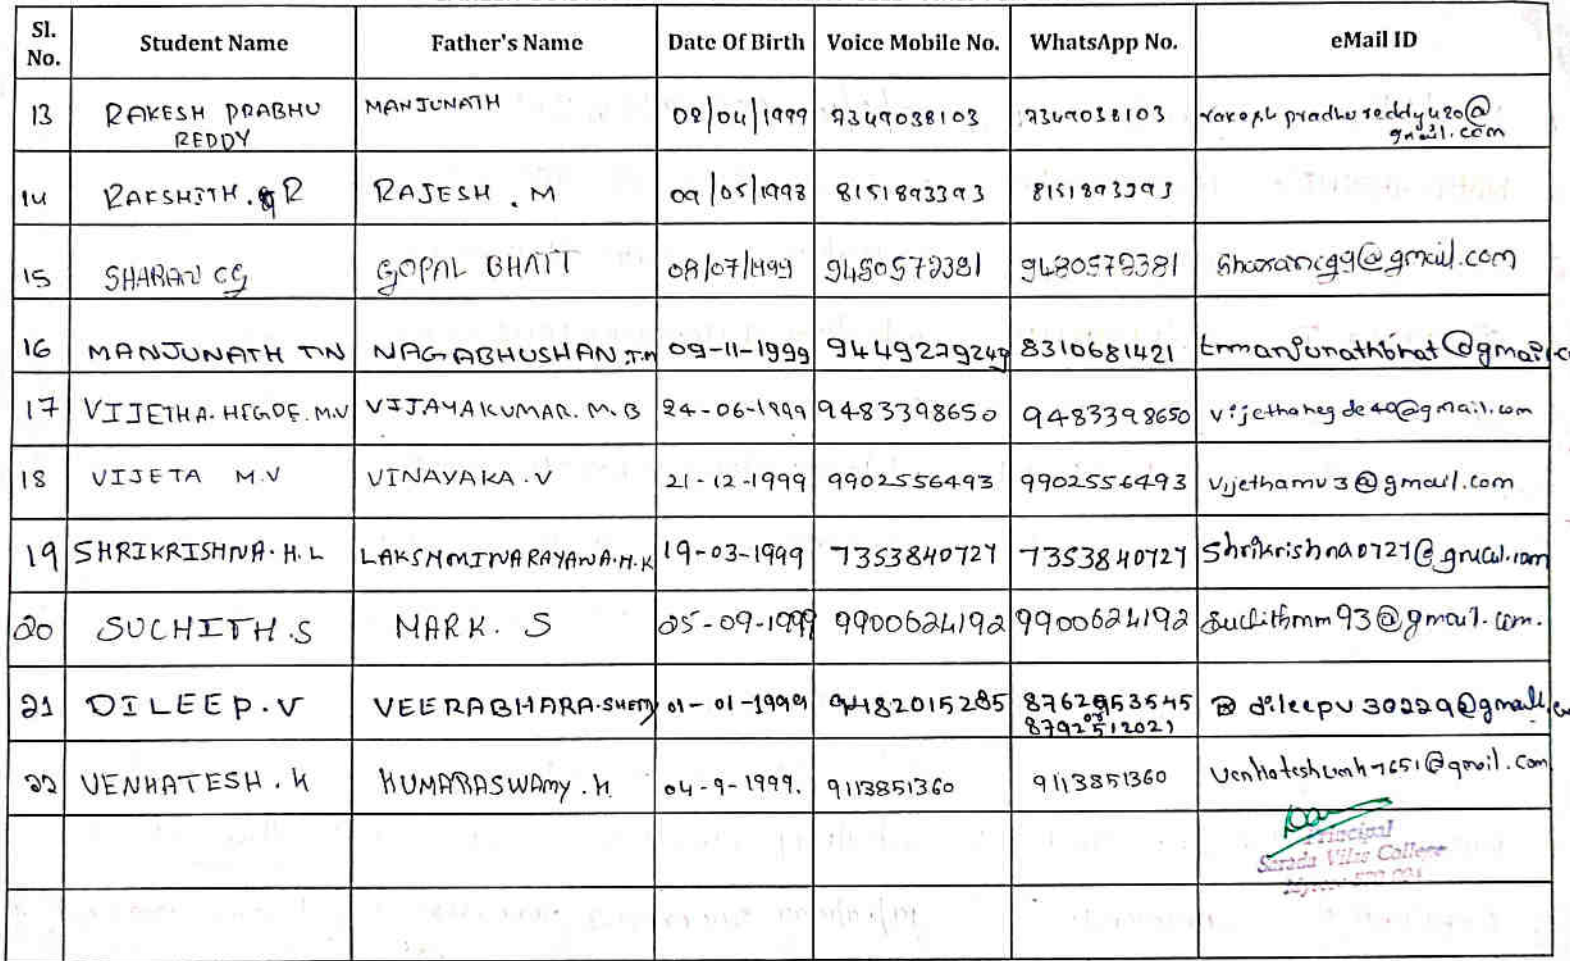 Sl. No. Student Name Father's Name Date Of Birth Voice Mobile No. WhatsApp No. eMail ID
13 RAKESH PRABHU REDDY MANJUNATH 08/04/1999 9347038103 9347038103 gmail.com
14 RAKSHITH. R RAJESH . M 09/05/1998 8151893393 8151893393
15 SHARAN CG GOPAL BHATT 08/07/1999 9480572381 9480572381 Sharancg9@gmail.com
16 MANJUNATH TN NAGABHUSHAN.T.N 09-11-1999 9449279249 8310681421
17 VIJETHA. HEGDE. M.V VIJAYAKUMAR. M.B 24-06-1999 9483398650 9483398650 vijethahegde40@gmail.com
18 VIJETA M.V VINAYAKA.V 21-12-1999 9902556493 9902556493 vijethamv3@gmail.com
19 SHRIKRISHNA.H.L LAKSHMINARAYANA.H.K 19-03-1999 7353840727 7353840727 Shrikrishna0727@gmail.com
20 SUCHITH.S MARK. S 05-09-1999 9900624192 9900624192 Suchithmm93@gmail.com.
21 DILEEP.V VEERABHARA.SHETTY 01-01-1999 9482015285 8762953545
22 VENKATESH.K KUMARASWAMY.K 04-9-1999. 9113851360 9113851360
Principal
Sarada Vilas College